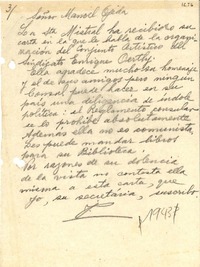 3/
1676
Señor Manuel Ojeda
La sta Mistral ha recibido su
carta en la que le habla de la organi-
zación del Conjunto Artístico del
Sindicato Enrique
Ella agradece mucho ese homenaje
y el de sus amigos pero ningún
Consul puede hacer en su
país una diligencia de índole
política: el Reglamento Consular
se lo prohibe absolutamente
Además ella no es comunista
Les puede mandar libros
para su Biblioteca.
Por razones de su dolencia
de la vista no contesta ella
misma a esta carta, que
yo, su secretaria, suscribo
¿1948?